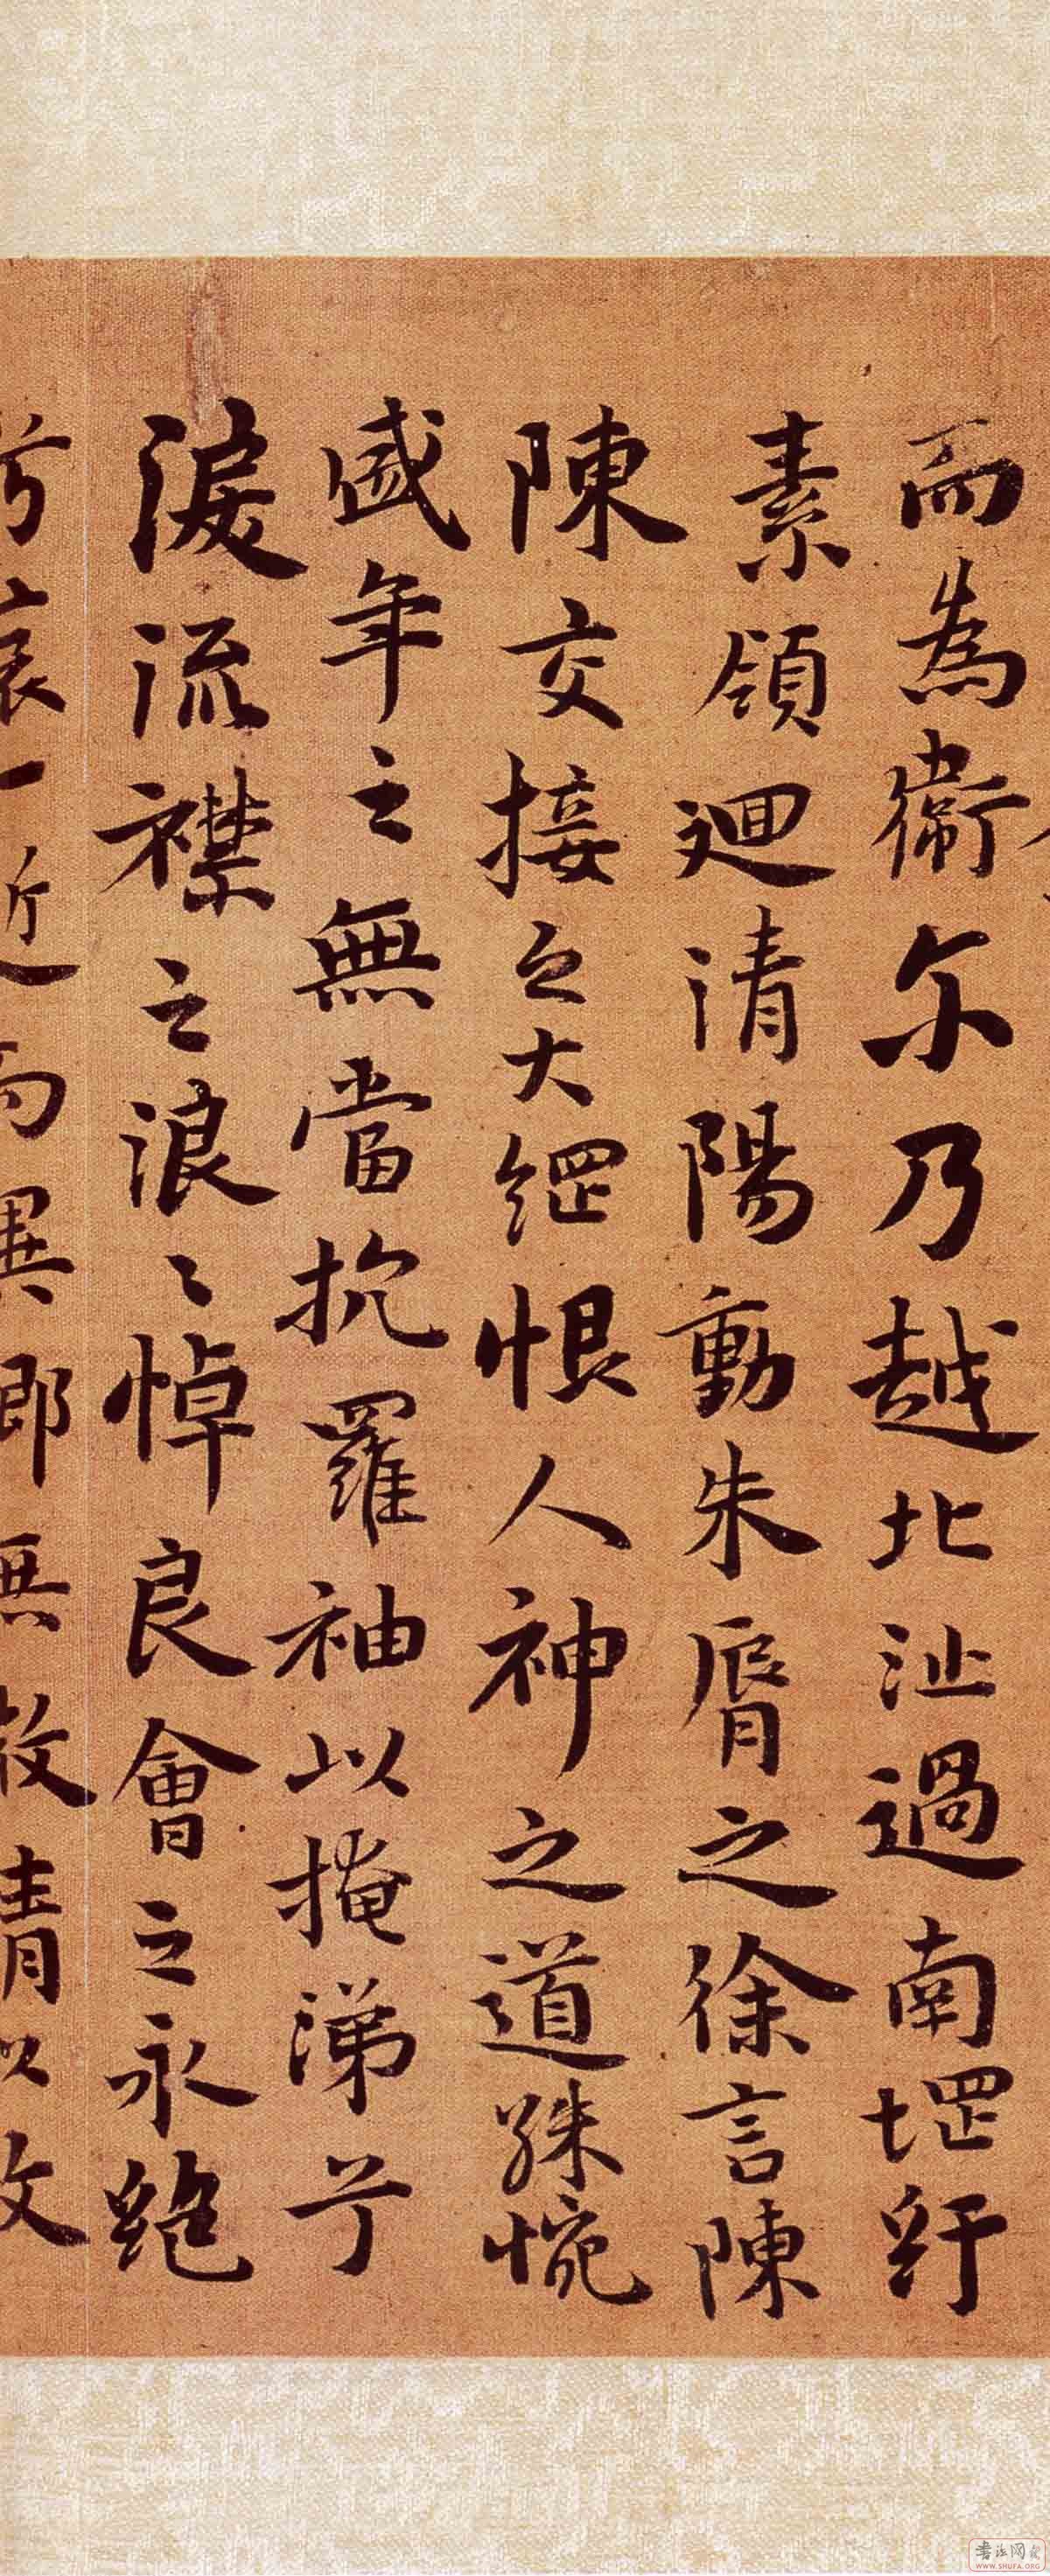 而為衛尓乃越北沚過南堽紆
素領迴清陽動朱脣之徐言陳
陳交接之大綱恨人神之道殊惋
盛年之無當抗羅袖以掩涕兮
淚流襟之浪〻悼良會之永絕
兮哀一逝而異鄉無效情以文
書法网
WWW.SHUFA.ORG